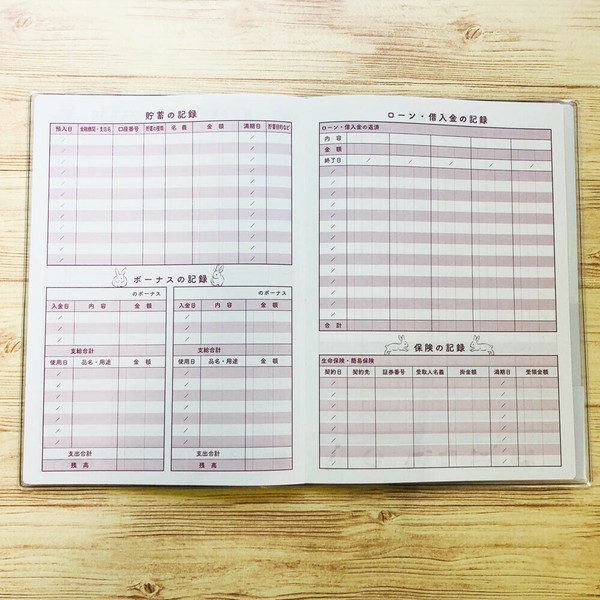 貯蓄の記録
預入日 金融機関・支店名 口座番号 貯蓄の種類 名義 金額 満期日 貯蓄目的など
ボーナスの記録
のボーナス
入金日 内容 金額
支給合計
使用日 品名・用途 金額
支出合計
残高
のボーナス
入金日 内容 金額
支給合計
使用日 品名・用途 金額
支出合計
残高
ローン・借入金の記録
ローン・借入金の返済
内容
金額
終了日
合計
保険の記録
生命保険・簡易保険
契約日 契約先 証券番号 受取人名義 掛金額 満期日 受領金額